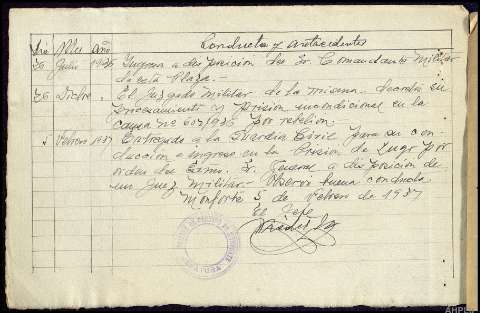 Conducta y antecedentes
Dia Mes Año
30 Julio 1936 Ingresa a disposicion del Sr. Comandante Militar
de esta Plaza.-
26 Dicbre. El Juzgado Militar de la misma decreta su
procesamiento y prision incondicional en la
causa nº 607/936 por rebelion.
5 Febrero 1937 Entregado a la Guardia Civil para su con-
duccion e ingreso en la Prision de Lugo por
orden del Excmo. Sr. General a disposicion de
un Juez Militar. Observó buena conducta
Monforte 5 de Febrero de 1937
El Jefe